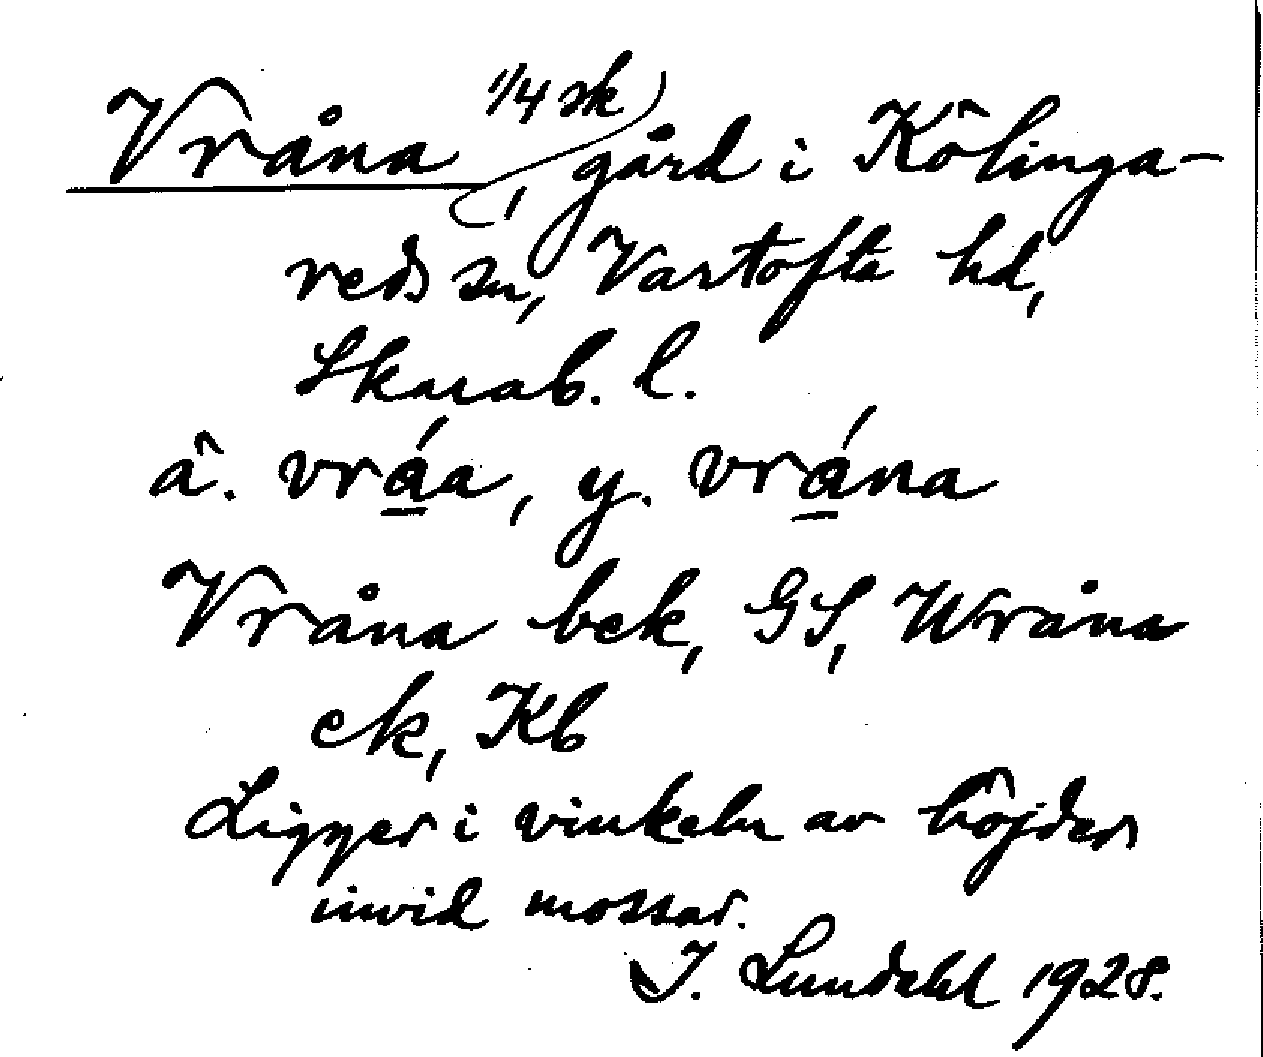 Vråna 1/4 sk, gård i Kôlinga-
reds sn, Vartofta hd,
Skarab. l.
â. vráa, y. vrána
Vråna bek, GS, Wråna
ek, Kb
Ligger i vinkeln av hôjder
invid mossar.
I. Lundahl 1928.